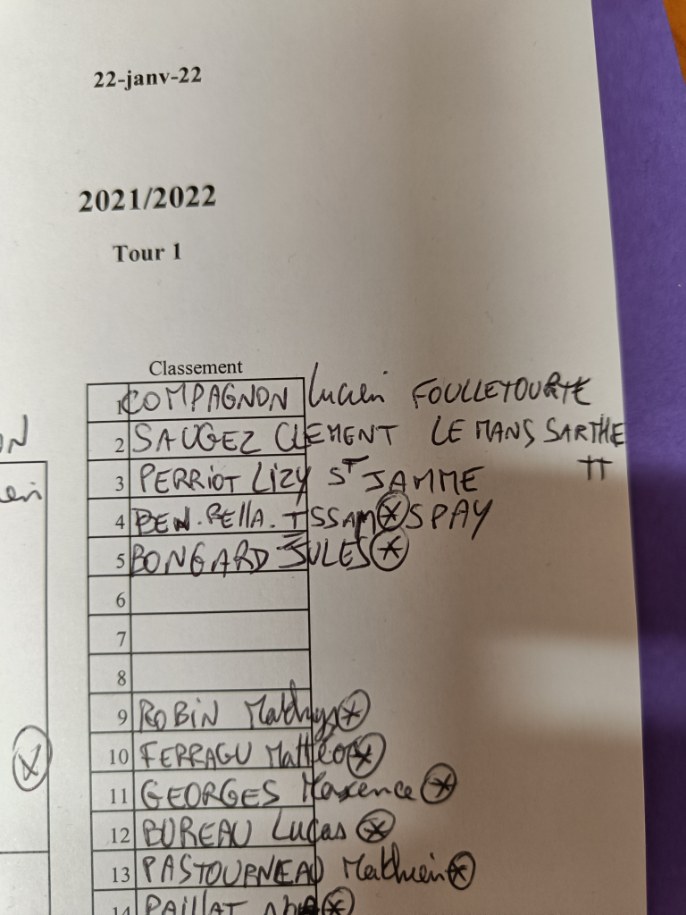 22-janv-22
2021/2022
Tour 1
Classement
1 COMPAGNON Lucien FOULLETOURTE
2 SAUGEZ CLEMENT LE MANS SARTHE
TT
3 PERRIOT LIZY ST JAMME
4 BEN.BEllA.ISSAM SPAY
5 BONGARD JULES
6
7
8
9 ROBIN Mathys
10 FERRAGU Mattéo
11 GEORGES Maxence
12 BUREAU Lucas
13 PASTOURNEAU Mathurin
14 PAILLAT